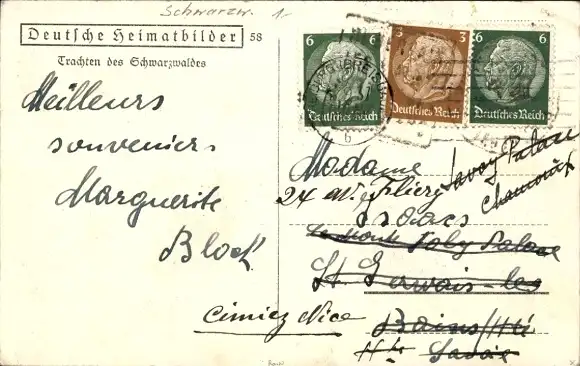 Schwarzw. 1-
Deutsche Heimatbilder 58
Trachten des Schwarzwaldes
6 6
Deutsches Reich
3 3
Deutsches Reich
6 6
Deutsches Reich
6
Meilleurs
souvenirs
Marguerite
Block
Madame
24 av.
Isaacs
Savoy Palace
Chamonix
Le Mont Joly Palace
St Gervais-les
Bains/Hte
Hte Savoie
Cimiez Nice